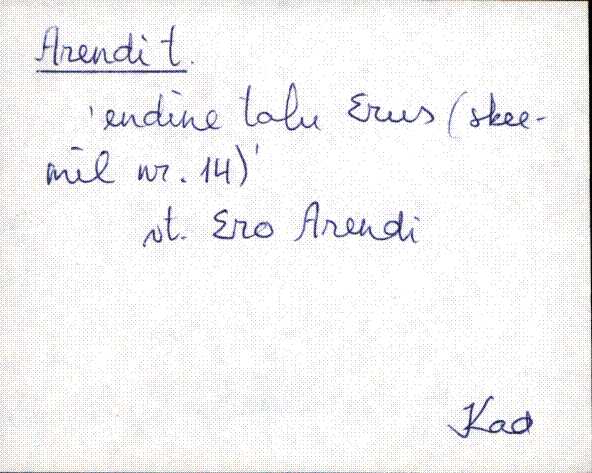 Arendi t.
'endine talu Erus (skee-
mil nr. 14)'
vt. Ero Arendi
Kad